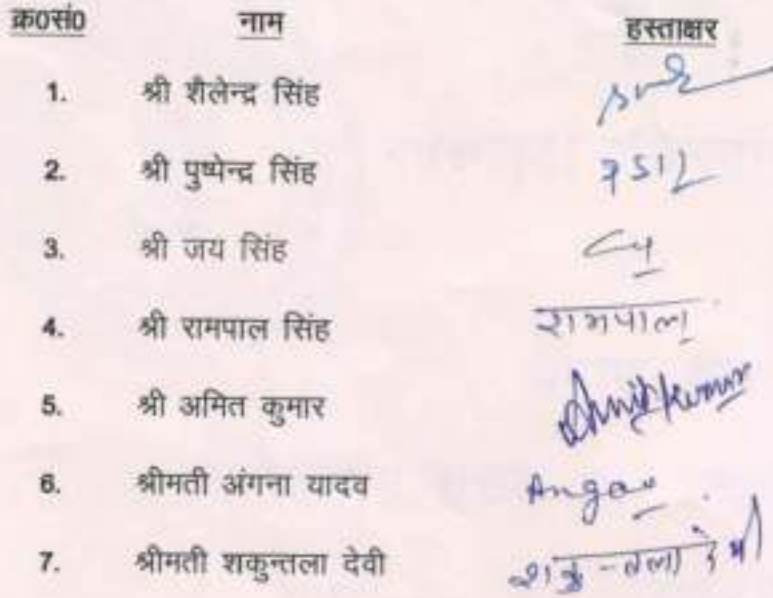 क्र०सं० नाम हस्ताक्षर
1. श्री शैलेन्द्र सिंह
2. श्री पुष्पेन्द्र सिंह
3. श्री जय सिंह
4. श्री रामपाल सिंह रामपाल
5. श्री अमित कुमार Amit Kumar
6. श्रीमती अंगना यादव
7. श्रीमती शकुन्तला देवी